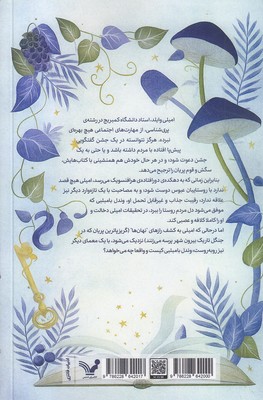 امیلی وایلد، استاد دانشگاه کمبریج در رشته‌ی
پری‌شناسی، از مهارت‌های اجتماعی هیچ بهره‌ای
نبرده. هرگز نتوانسته در یک جشن گفتگویی
پیش‌پا افتاده با مردم داشته باشد و یا حتی به یک
جشن دعوت شود؛ و در هر حال خودش هم همنشینی با کتاب‌هایش،
سگش و قوم پریان را ترجیح می‌دهد.
بنابراین زمانی که به دهکده‌ی دورافتاده‌ی هرافنسویک می‌رسد، امیلی هیچ قصد
ندارد با روستاییان عبوس دوست شود، و به مصاحبت با یک تازه‌وارد دیگر نیز
علاقه ندارد. رقیبت جذاب و غیرقابل تحمل او، وندل بامبلبی که
موفق می‌شود دل مردم روستا را ببرد، در تحقیقات امیلی دخالت و
او را کاملا کلافه و عصبی کند.
اما در حالی که امیلی به کشف رازهای "نهان‌ها" (گریزان‌ترین پریان که در
جنگل تاریک بیرون شهر پرسه می‌زنند) نزدیک می‌شود، با یک معمای دیگر
نیز روبه‌روست: وندل بامبلبی کیست و واقعا چه می‌خواهد؟
9 786228 642017
9 786228 642000